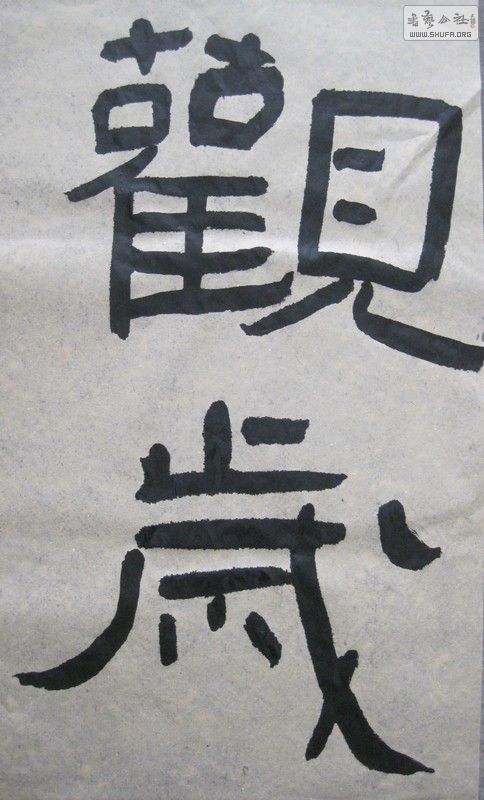 觀
歲
書藝公社
WWW.SHUFA.ORG